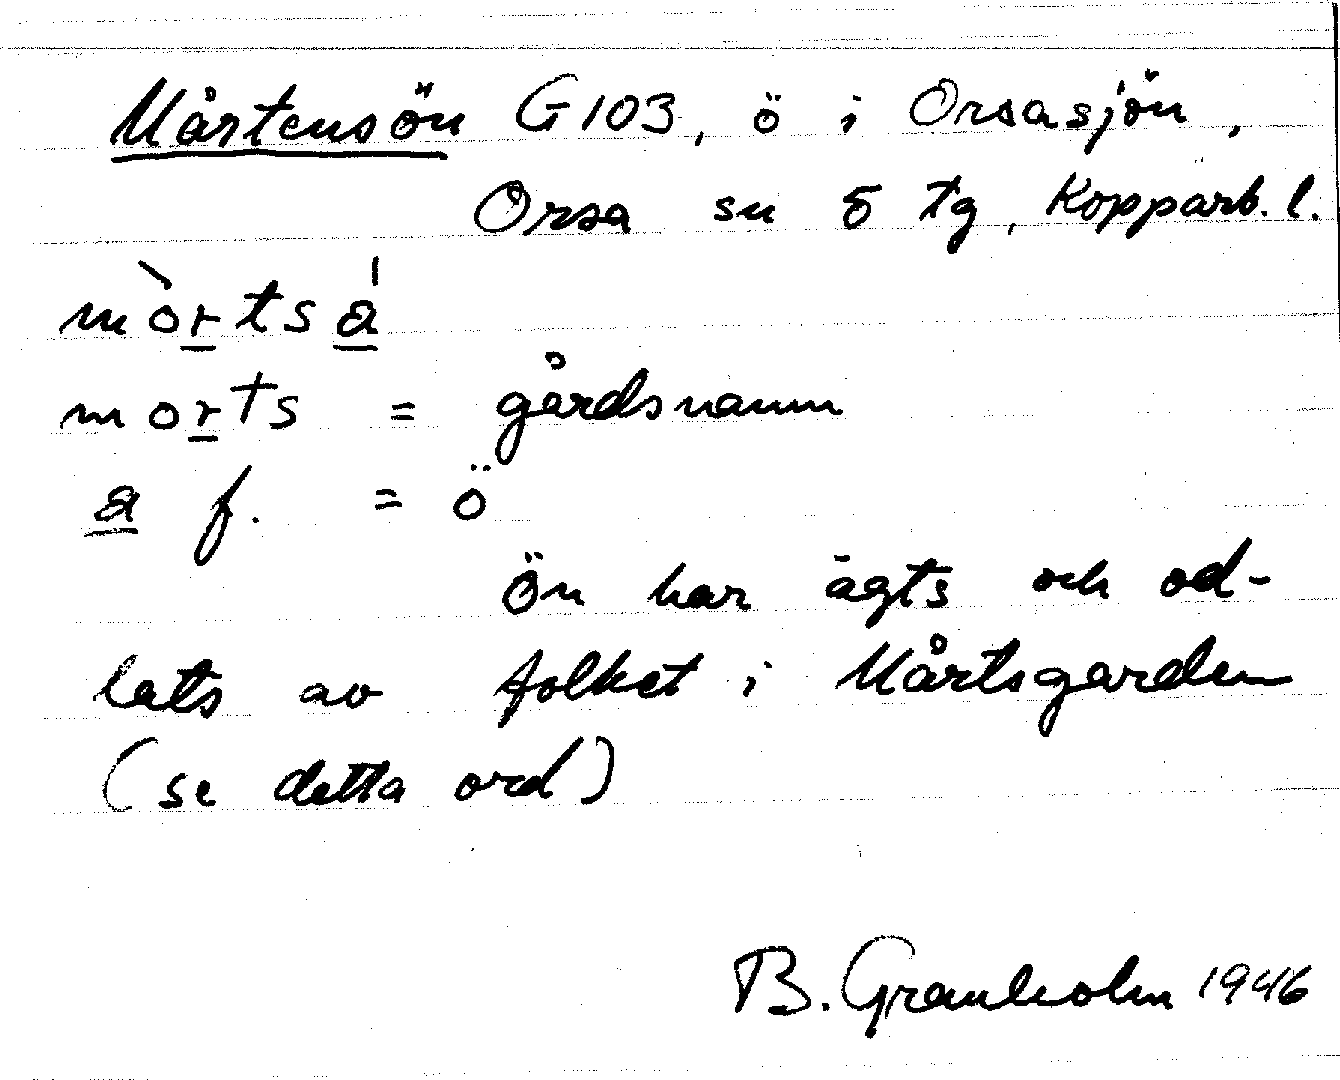 Mårtensön G103, ö i Orsasjön,
Orsa sn o tg, Kopparb. l.
mòrtsá
morts = gårdsnamn
a f. = ö
Ön har ägts och od-
lats av folket i Mårtsgarden
(se detta ord)
B. Granholm 1946